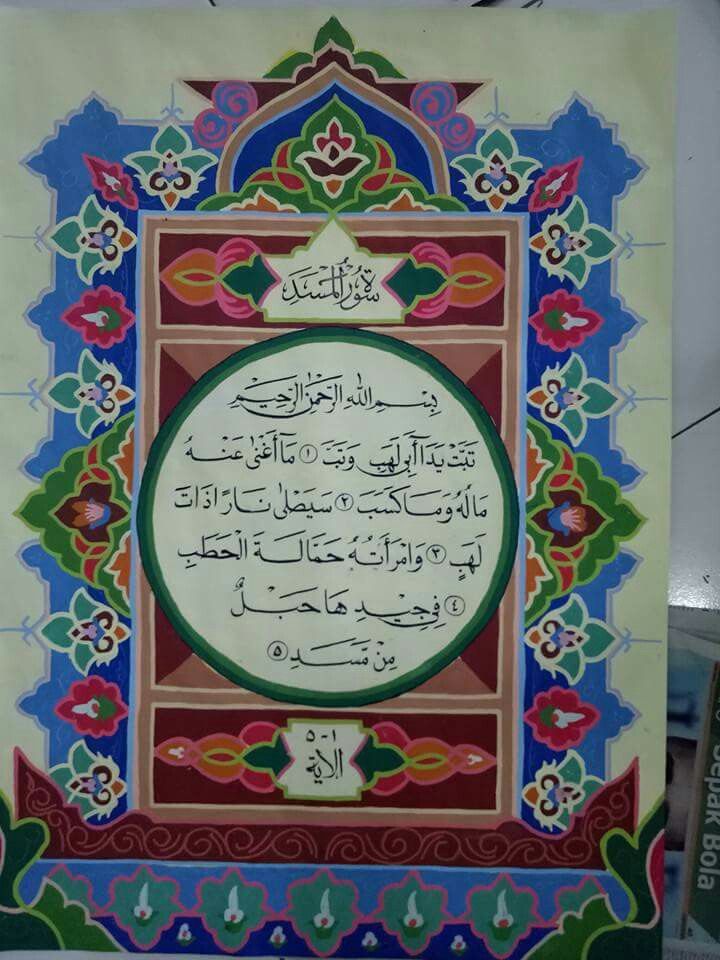 سورة المسد
بِسْمِ اللهِ الرَّحْمٰنِ الرَّحِيْمِ
تَبَّتْ يَدَا أَبِي لَهَبٍ وَتَبَّ ١ مَا أَغْنٰى عَنْهُ
مَالُهُ وَمَا كَسَبَ ٢ سَيَصْلٰى نَارًا ذَاتَ
لَهَبٍ ٣ وَامْرَأَتُهُ حَمَّالَةَ الْحَطَبِ
٤ فِي جِيْدِ هَا حَبْلٌ
مِنْ مَّسَدٍ ٥
١-٥
الاية
Sepak Bola